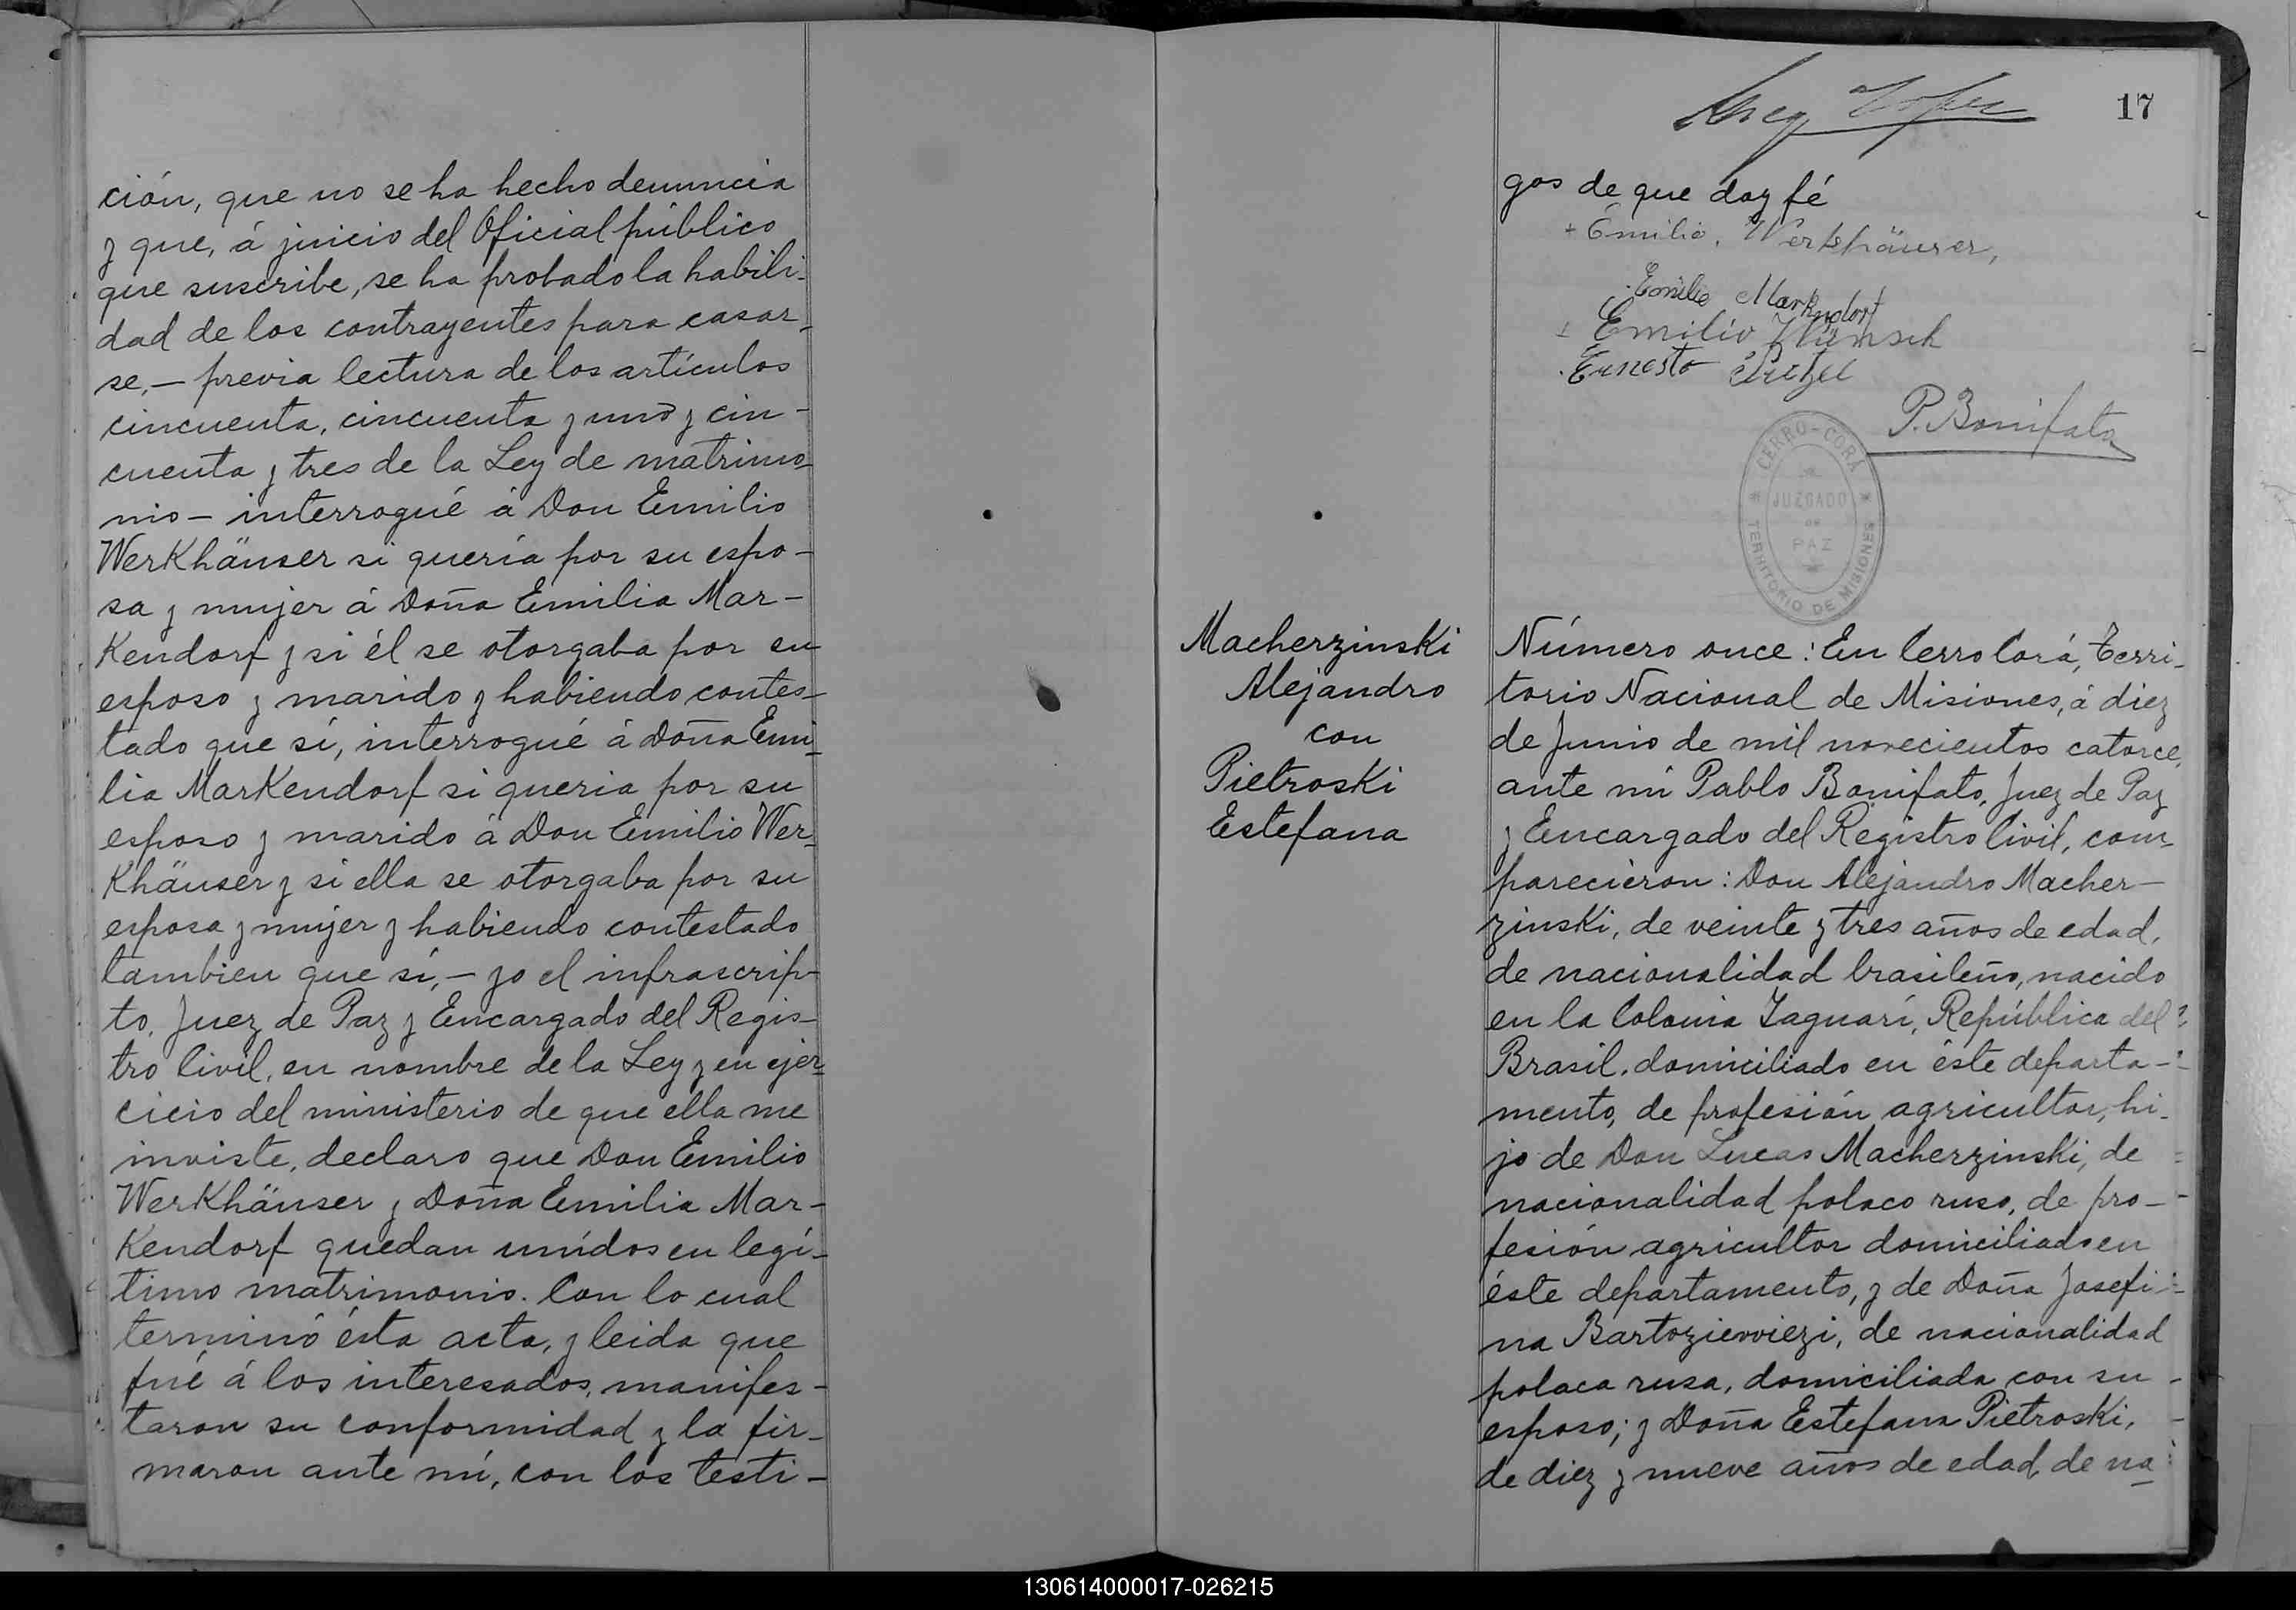 ción, que no se ha hecho denuncia
y que, á juicio del Oficial público
que suscribe, se ha probado la habili-
dad de los contrayentes para casar-
se, — previa lectura de los artículos
cincuenta, cincuenta y uno y cin-
cuenta y tres de la Ley de matrimo-
nio — interrogué á Don Emilio
WerKhäuser si quería por su espo-
sa y mujer á Doña Emilia Mar-
Kendorf y si él se otorgaba por su
esposo y marido y habiendo contes-
tado que sí, interrogué á Doña Emi-
lia MarKendorf si queria por su
esposo y marido á Don Emilio Wer-
Khäuser y si ella se otorgaba por su
esposa y mujer y habiendo contestado
tambien que sí, — yo el infrascrip-
to, Juez de Paz y Encargado del Regis-
tro Civil, en nombre de la Ley y en ejer-
cicio del ministerio de que ella me
inviste, declaro que Don Emilio
WerKhäuser y Doña Emilia Mar-
Kendorf quedan unidos en legí-
timo matrimonio. Con lo cual
terminó ésta acta, y leida que
fué á los interesados, manifes-
taron su conformidad y la fir-
maron ante mí, con los testi-
17
gos de que doy fé
Emilio Werkhäuser,
Emilia Markendorf
Emilio Wünsch
Ernesto
P. Bonifato
CERRO-CORÁ
JUZGADO
DE
PAZ
TERRITORIO DE MISIONES
MacherzinsKi
Alejandro
con
PietrosKi
Estefana
Número once: En Cerro Corá, Terri-
torio Nacional de Misiones, á diez
de Junio de mil novecientos catorce,
ante mí Pablo Bonifato, Juez de Paz
y Encargado del Registro Civil, com-
parecieron: Don Alejandro Macher-
zinsKi, de veinte y tres años de edad,
de nacionalidad brasileño, nacido
en la Colonia Yaguarí, República del
Brasil, domiciliado en éste departa-
mento, de profesión agricultor, hi-
jo de Don Lucas Macherzinski, de
nacionalidad polaco ruso, de pro-
fesión agricultor domiciliado en
éste departamento, y de Doña Josefi-
na Bartozievviezi, de nacionalidad
polaca rusa, domiciliada con su
esposo; y Doña Estefana PietrosKi,
de diez y nueve años de edad, de na-
130614000017-026215